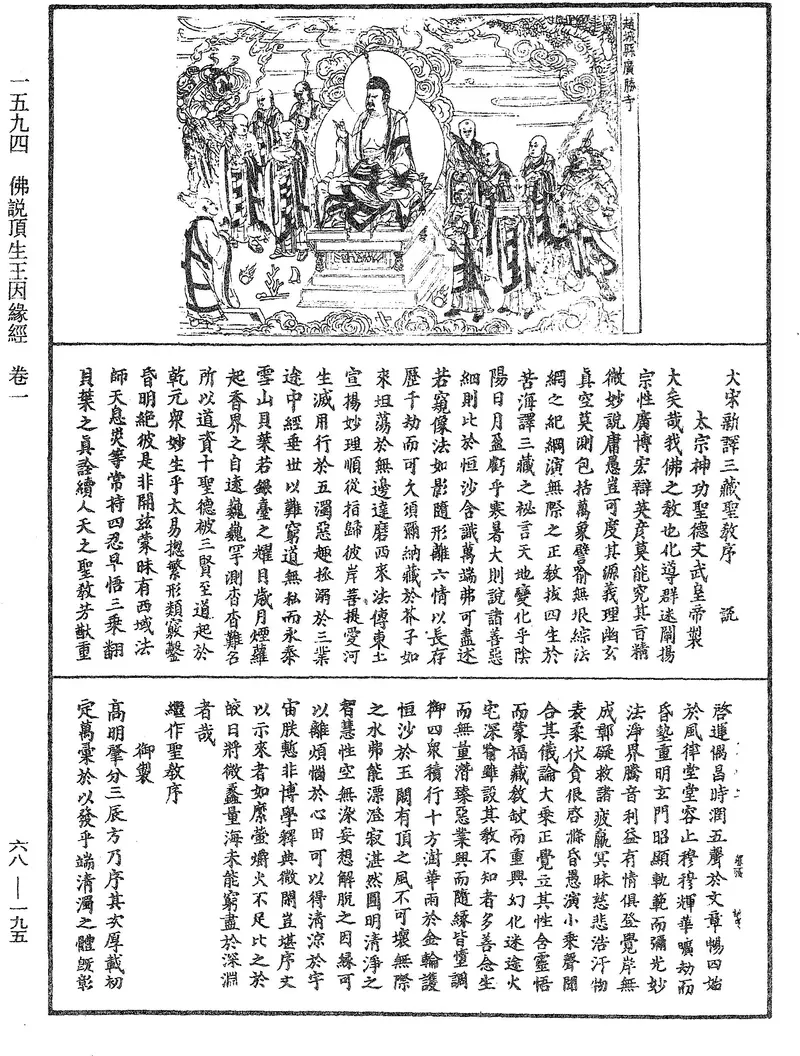 趙城縣廣勝寺
大宋新譯三藏聖教序
太宗神功聖德文武皇帝製
大矣哉我佛之教也化導群迷闡揚
宗性廣博宏辯英彥莫能究其旨精
微妙說庸愚豈可度其源義理幽玄
真空莫測包括萬象譬喻無垠綜法
網之紀綱演無際之正教拔四生於
苦海譯三藏之祕言天地變化乎陰
陽日月盈虧乎寒暑大則說諸善惡
細則比於恒沙含識萬端弗可盡述
若窺像法如影隨形離六情以長存
歷千劫而可久須彌納藏於芥子如
來坦蕩於無邊達磨西來法傳東土
宣揚妙理順從指歸彼岸菩提愛河
生滅用行於五濁惡趣拯溺於三業
途中經垂世以難窮道無私而永泰
雪山貝葉若銀臺之耀目歲月煙蘿
起香界之自遠巍巍罕測杳杳難名
所以道資十聖德被三賢至道起於
乾元眾妙生乎太易揔繁形類竅鑿
昏明絕彼是非開茲蒙昧有西域法
師天息災等常持四忍早悟三乘翻
貝葉之真詮續人天之聖教芳猷重
啓運偶昌時潤五聲於文章暢四始
於風律堂堂容止穆穆輝華曠劫而
昏墊重明玄門昭顯軌範而彌光妙
法淨界騰音利益有情俱登覺岸無
成鄣礙救諸疲羸冥昧慈悲浩汗物
表柔伏貪很啓滌昏愚演小乘聲聞
合其儀論大乘正覺立其性含靈悟
而蒙福藏教缺而重興幻化迷途火
宅深喻雖設其教不知者多善念生
而無量潛臻惡業興而隨緣皆墮調
御四眾積行十方澍華雨於金輪護
恒沙於玉闕有頂之風不可壞無際
之水弗能漂澄寂湛然圓明清淨之
智慧性空無染妄想解脫之因緣可
以離煩惱於心田可以得清涼於宇
宙朕慙非博學釋典微閑豈堪序文
以示來者如縻螢爝火不足比之於
皎日將微蠡量海未能窮盡於深淵
者哉
繼作聖教序
御製
高明肇分三辰方乃序其次厚載初
定萬彙於以發乎端清濁之體既彰
一五九四　佛說頂生王因緣經　卷一
六八—一九五